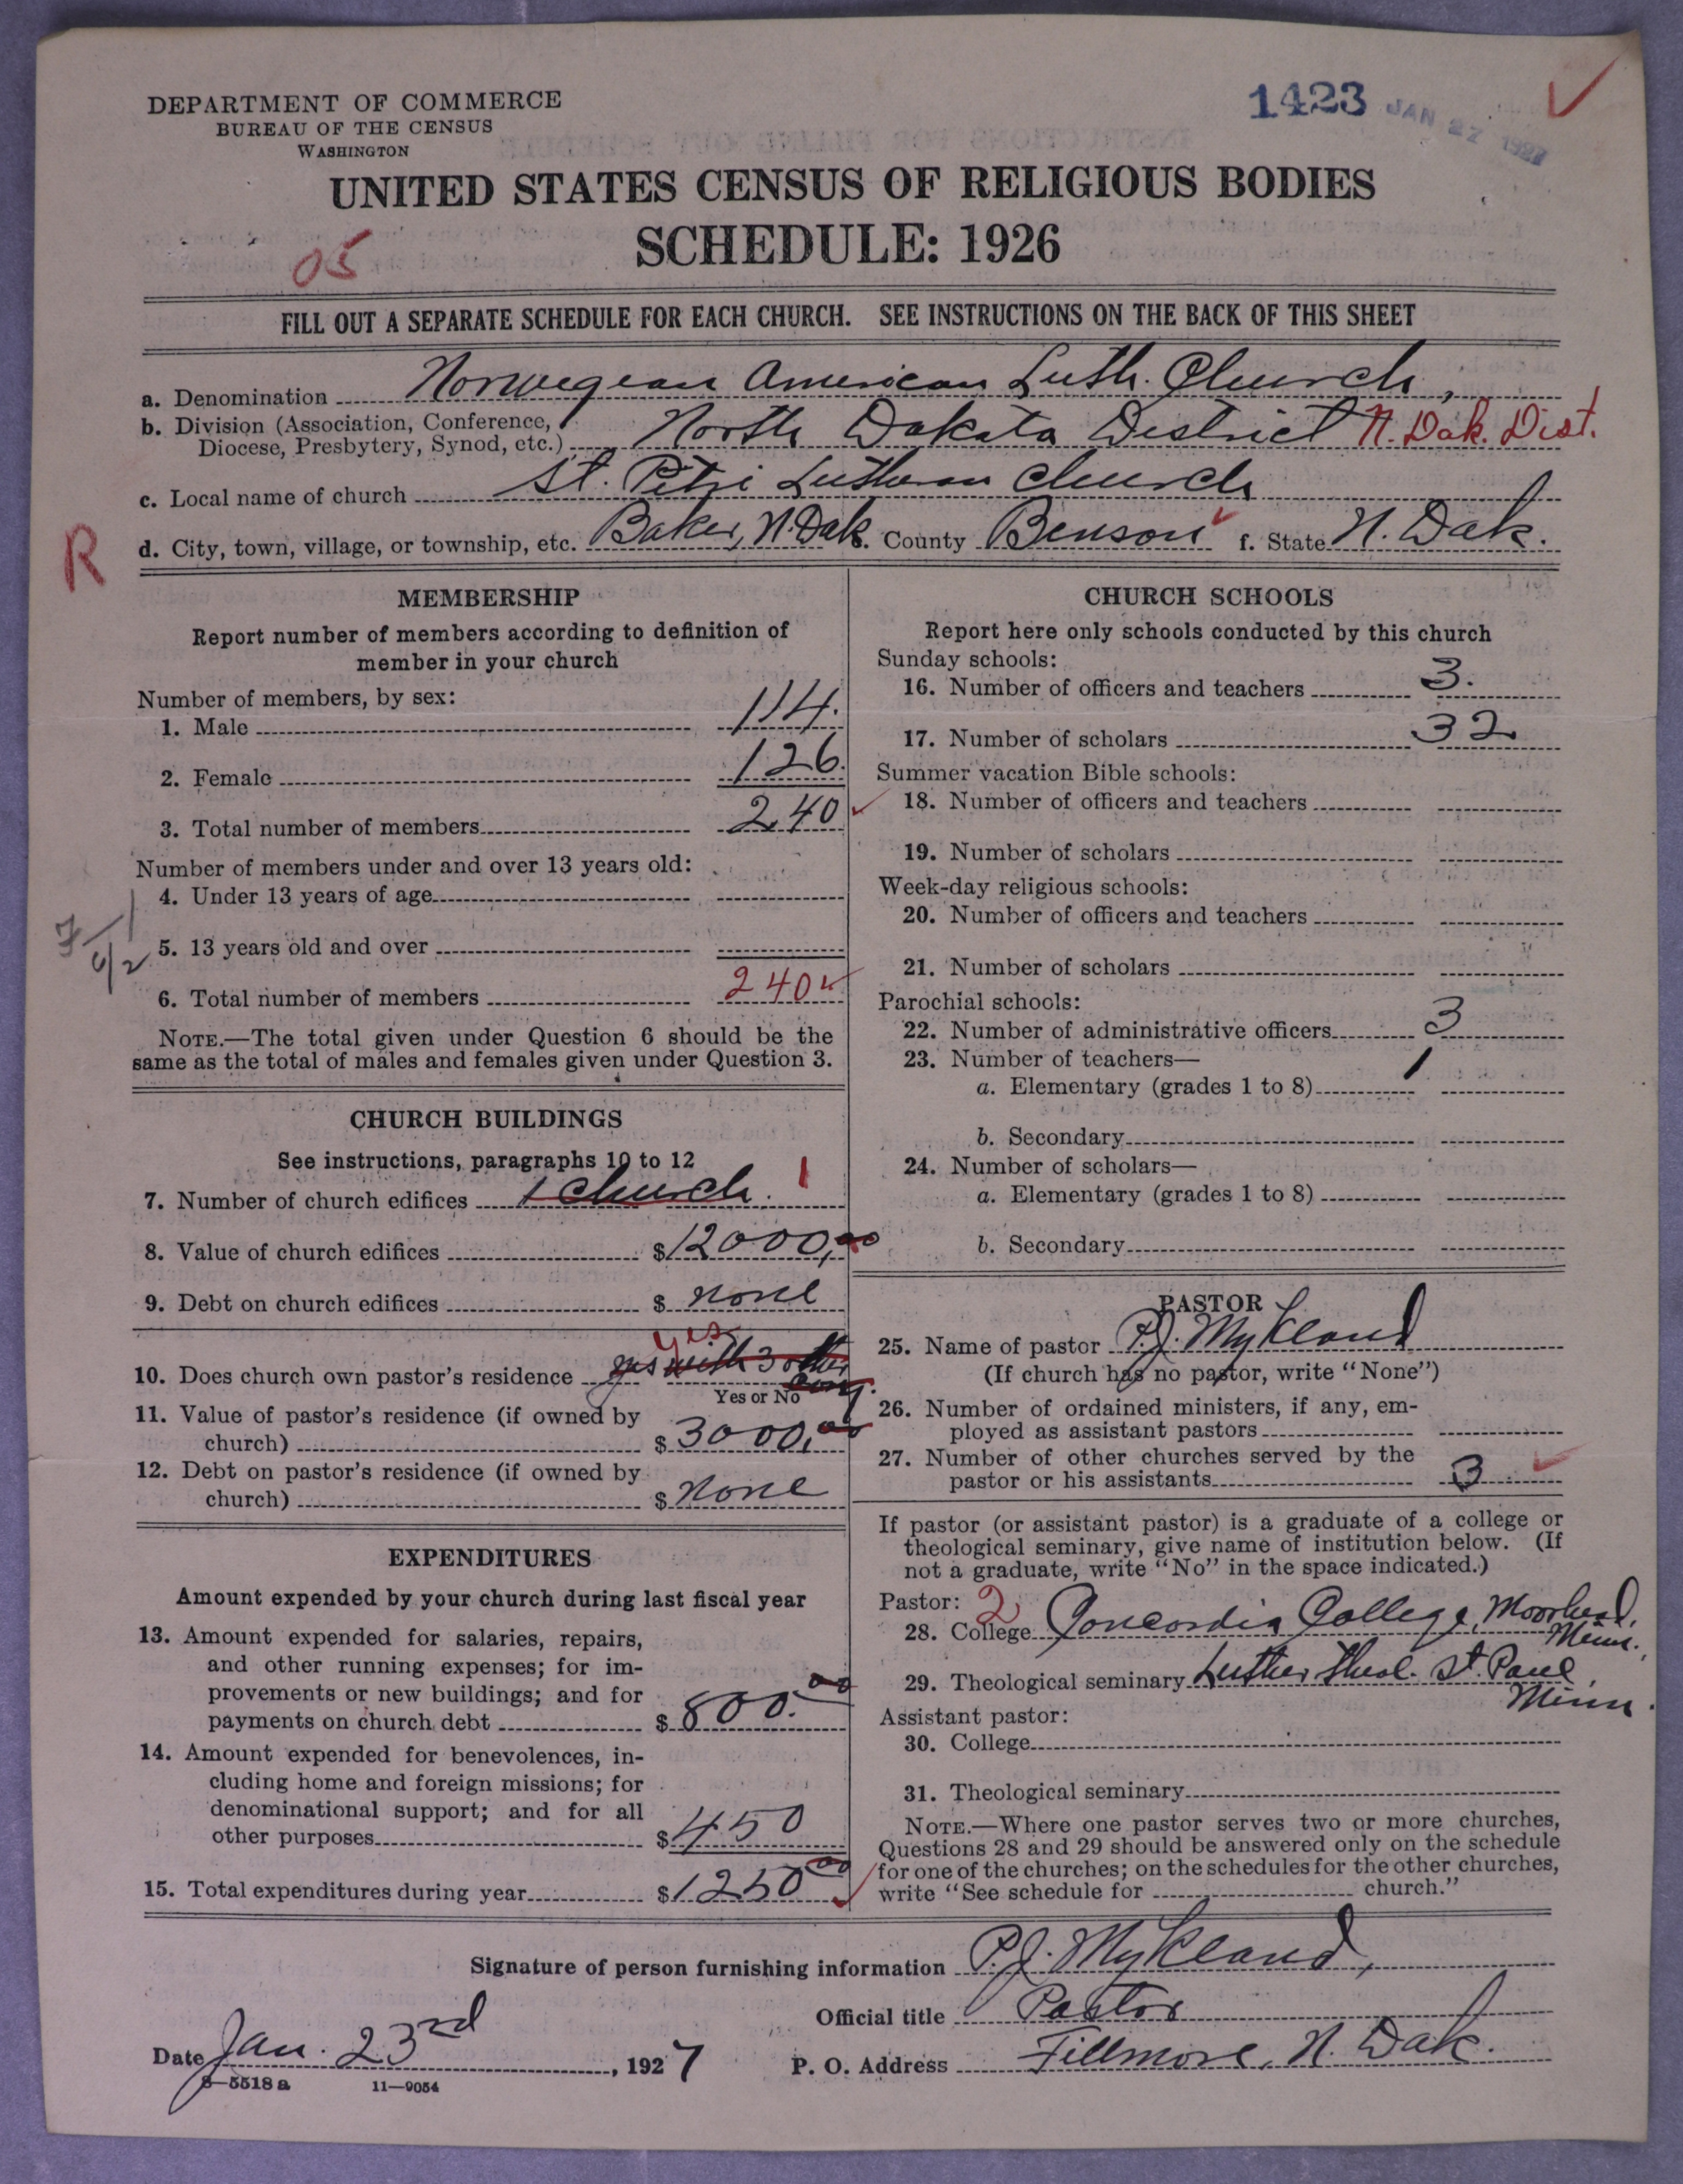 DEPARTMENT OF COMMERCE
BUREAU OF THE CENSUS
WASHINGTON
1423 JAN 27 1927
UNITED STATES CENSUS OF RELIGIOUS BODIES
SCHEDULE: 1926
05
FILL OUT A SEPARATE SCHEDULE FOR EACH CHURCH. SEE INSTRUCTIONS ON THE BACK OF THIS SHEET
a. Denomination Norwegean American Luth. Church,
b. Division (Association, Conference,
Diocese, Presbytery, Synod, etc.) North Dakota District N. Dak. Dist.
c. Local name of church St. Petri Lutheran Church
R
d. City, town, village, or township, etc. Baker, N. Dak. County Benson f. State N. Dak.
MEMBERSHIP
Report number of members according to definition of
member in your church
Number of members, by sex:
1. Male 114.
2. Female 126.
3. Total number of members 240
Number of members under and over 13 years old:
4. Under 13 years of age
5. 13 years old and over
6. Total number of members 240
NOTE.—The total given under Question 6 should be the
same as the total of males and females given under Question 3.
CHURCH BUILDINGS
See instructions, paragraphs 10 to 12
7. Number of church edifices 1 church. 1
8. Value of church edifices $12000,00
9. Debt on church edifices $ none
10. Does church own pastor's residence yes with 3 other cong. Yes
Yes or No
11. Value of pastor's residence (if owned by
church) $3000,00
12. Debt on pastor's residence (if owned by
church) $ None
EXPENDITURES
Amount expended by your church during last fiscal year
13. Amount expended for salaries, repairs,
and other running expenses; for im-
provements or new buildings; and for
payments on church debt $ 800.00
14. Amount expended for benevolences, in-
cluding home and foreign missions; for
denominational support; and for all
other purposes $450
15. Total expenditures during year $1250 00
CHURCH SCHOOLS
Report here only schools conducted by this church
Sunday schools:
16. Number of officers and teachers 3.
17. Number of scholars 32
Summer vacation Bible schools:
18. Number of officers and teachers
19. Number of scholars
Week-day religious schools:
20. Number of officers and teachers
21. Number of scholars
Parochial schools:
22. Number of administrative officers 3
23. Number of teachers—
a. Elementary (grades 1 to 8) 1
b. Secondary
24. Number of scholars—
a. Elementary (grades 1 to 8)
b. Secondary
PASTOR
25. Name of pastor P.J. Mykland
(If church has no pastor, write "None")
26. Number of ordained ministers, if any, em-
ployed as assistant pastors
27. Number of other churches served by the
pastor or his assistants 3
If pastor (or assistant pastor) is a graduate of a college or
theological seminary, give name of institution below. (If
not a graduate, write "No" in the space indicated.)
Pastor: 2
28. College Concordia College, Moorhead, Minn.
29. Theological seminary Luther Theol. St. Paul, Minn.
Assistant pastor:
30. College
31. Theological seminary
NOTE.—Where one pastor serves two or more churches,
Questions 28 and 29 should be answered only on the schedule
for one of the churches; on the schedules for the other churches,
write "See schedule for church."
Signature of person furnishing information P.J. Mykland,
Official title Pastor
Date Jan. 23rd, 1927
P. O. Address Fillmore, N. Dak.
8—5518 a 11—9054